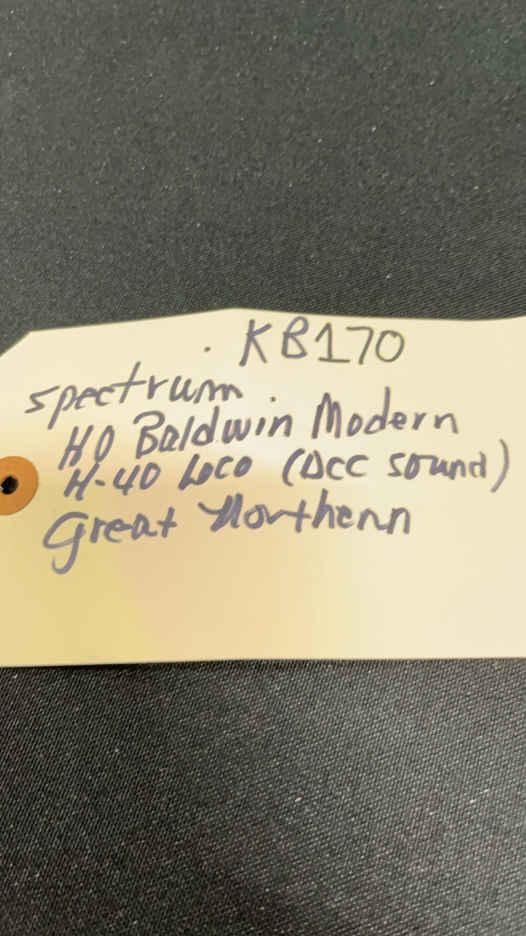 KB170
spectrum
HO Baldwin Modern
4-4-0 Loco (DCC sound)
Great Northern